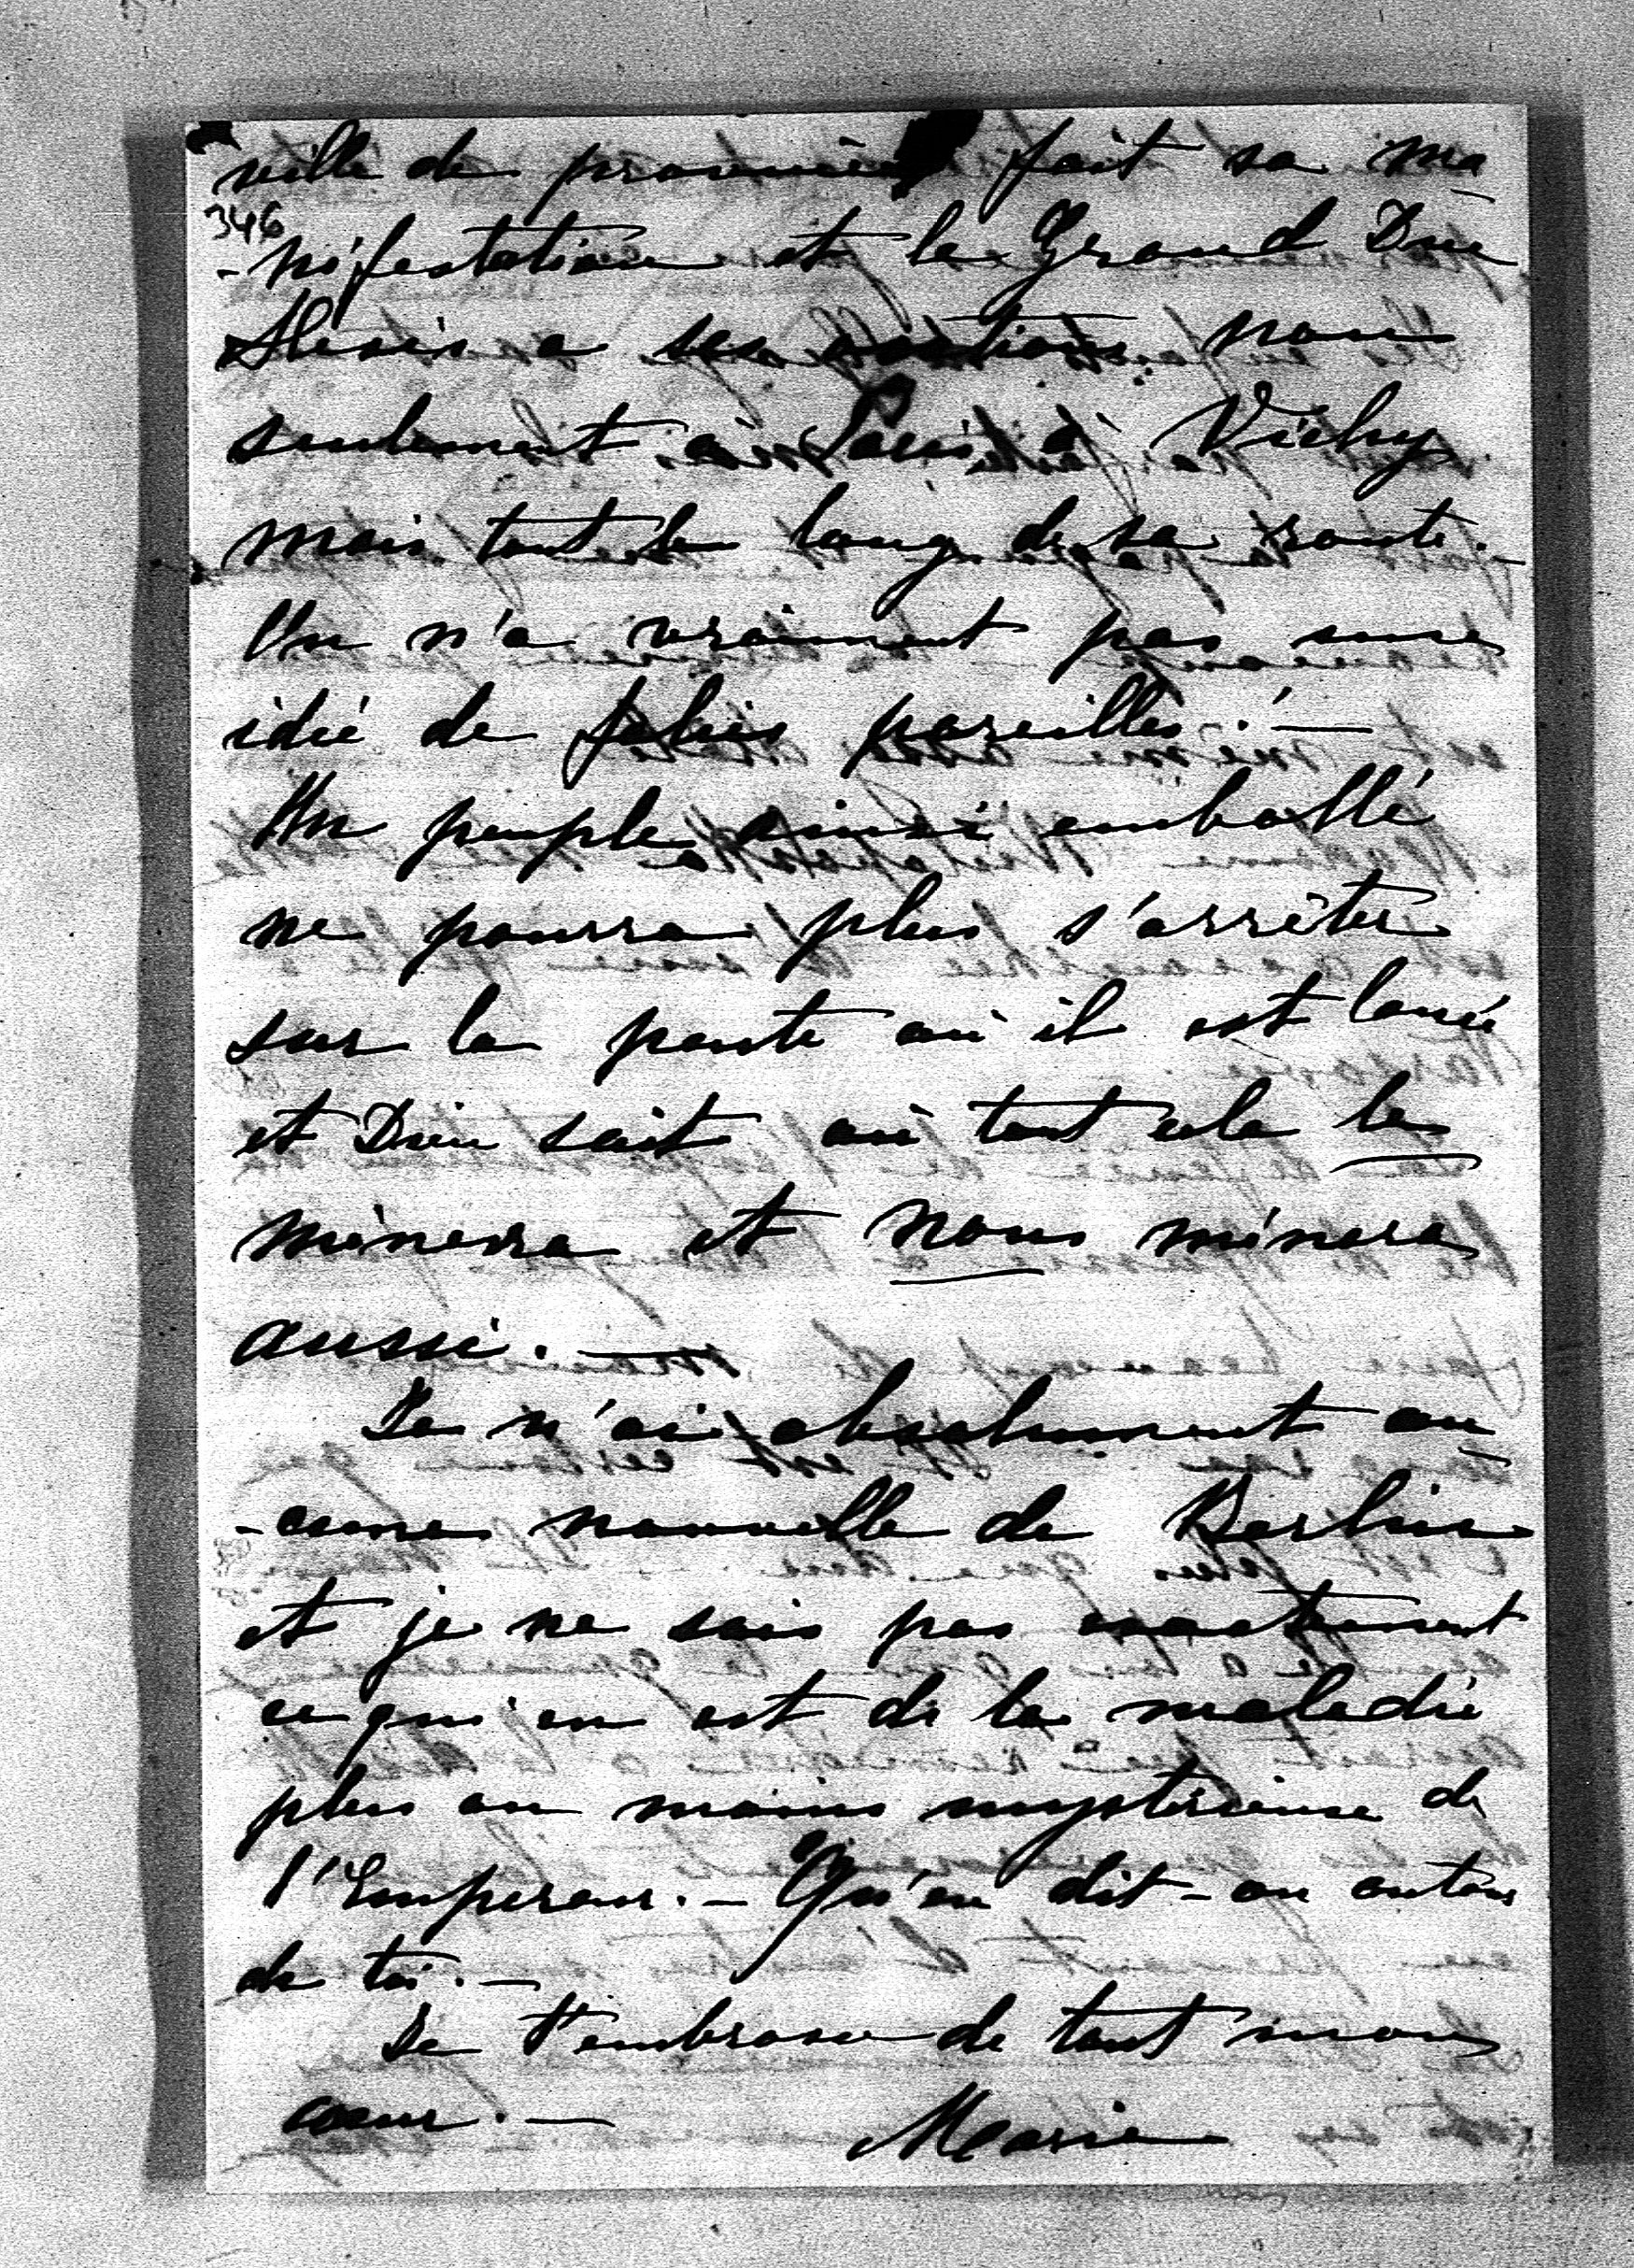 ville de province fait sa ma
346
-nifestation et le Grand Duc
Alexis a ses ovations non
seulement à Paris, à Vichy
mais tout le long de sa route.
On n'a vraiment pas une
idée de folies pareilles. —
Un peuple ainsi emballé
ne pourra plus s'arrêter
sur la pente où il est lancé
et Dieu sait où tout cela le
mènera et nous mènera
aussi. —
Je n'ai absolument au
-cune nouvelle de Berlin
et je ne sais pas exactement
ce qui en est de la maladie
plus ou moins mystérieuse de
l'Empereur. — Qu'en dit-on autour
de toi. —
Je t'embrasse de tout mon
coeur. — Marie